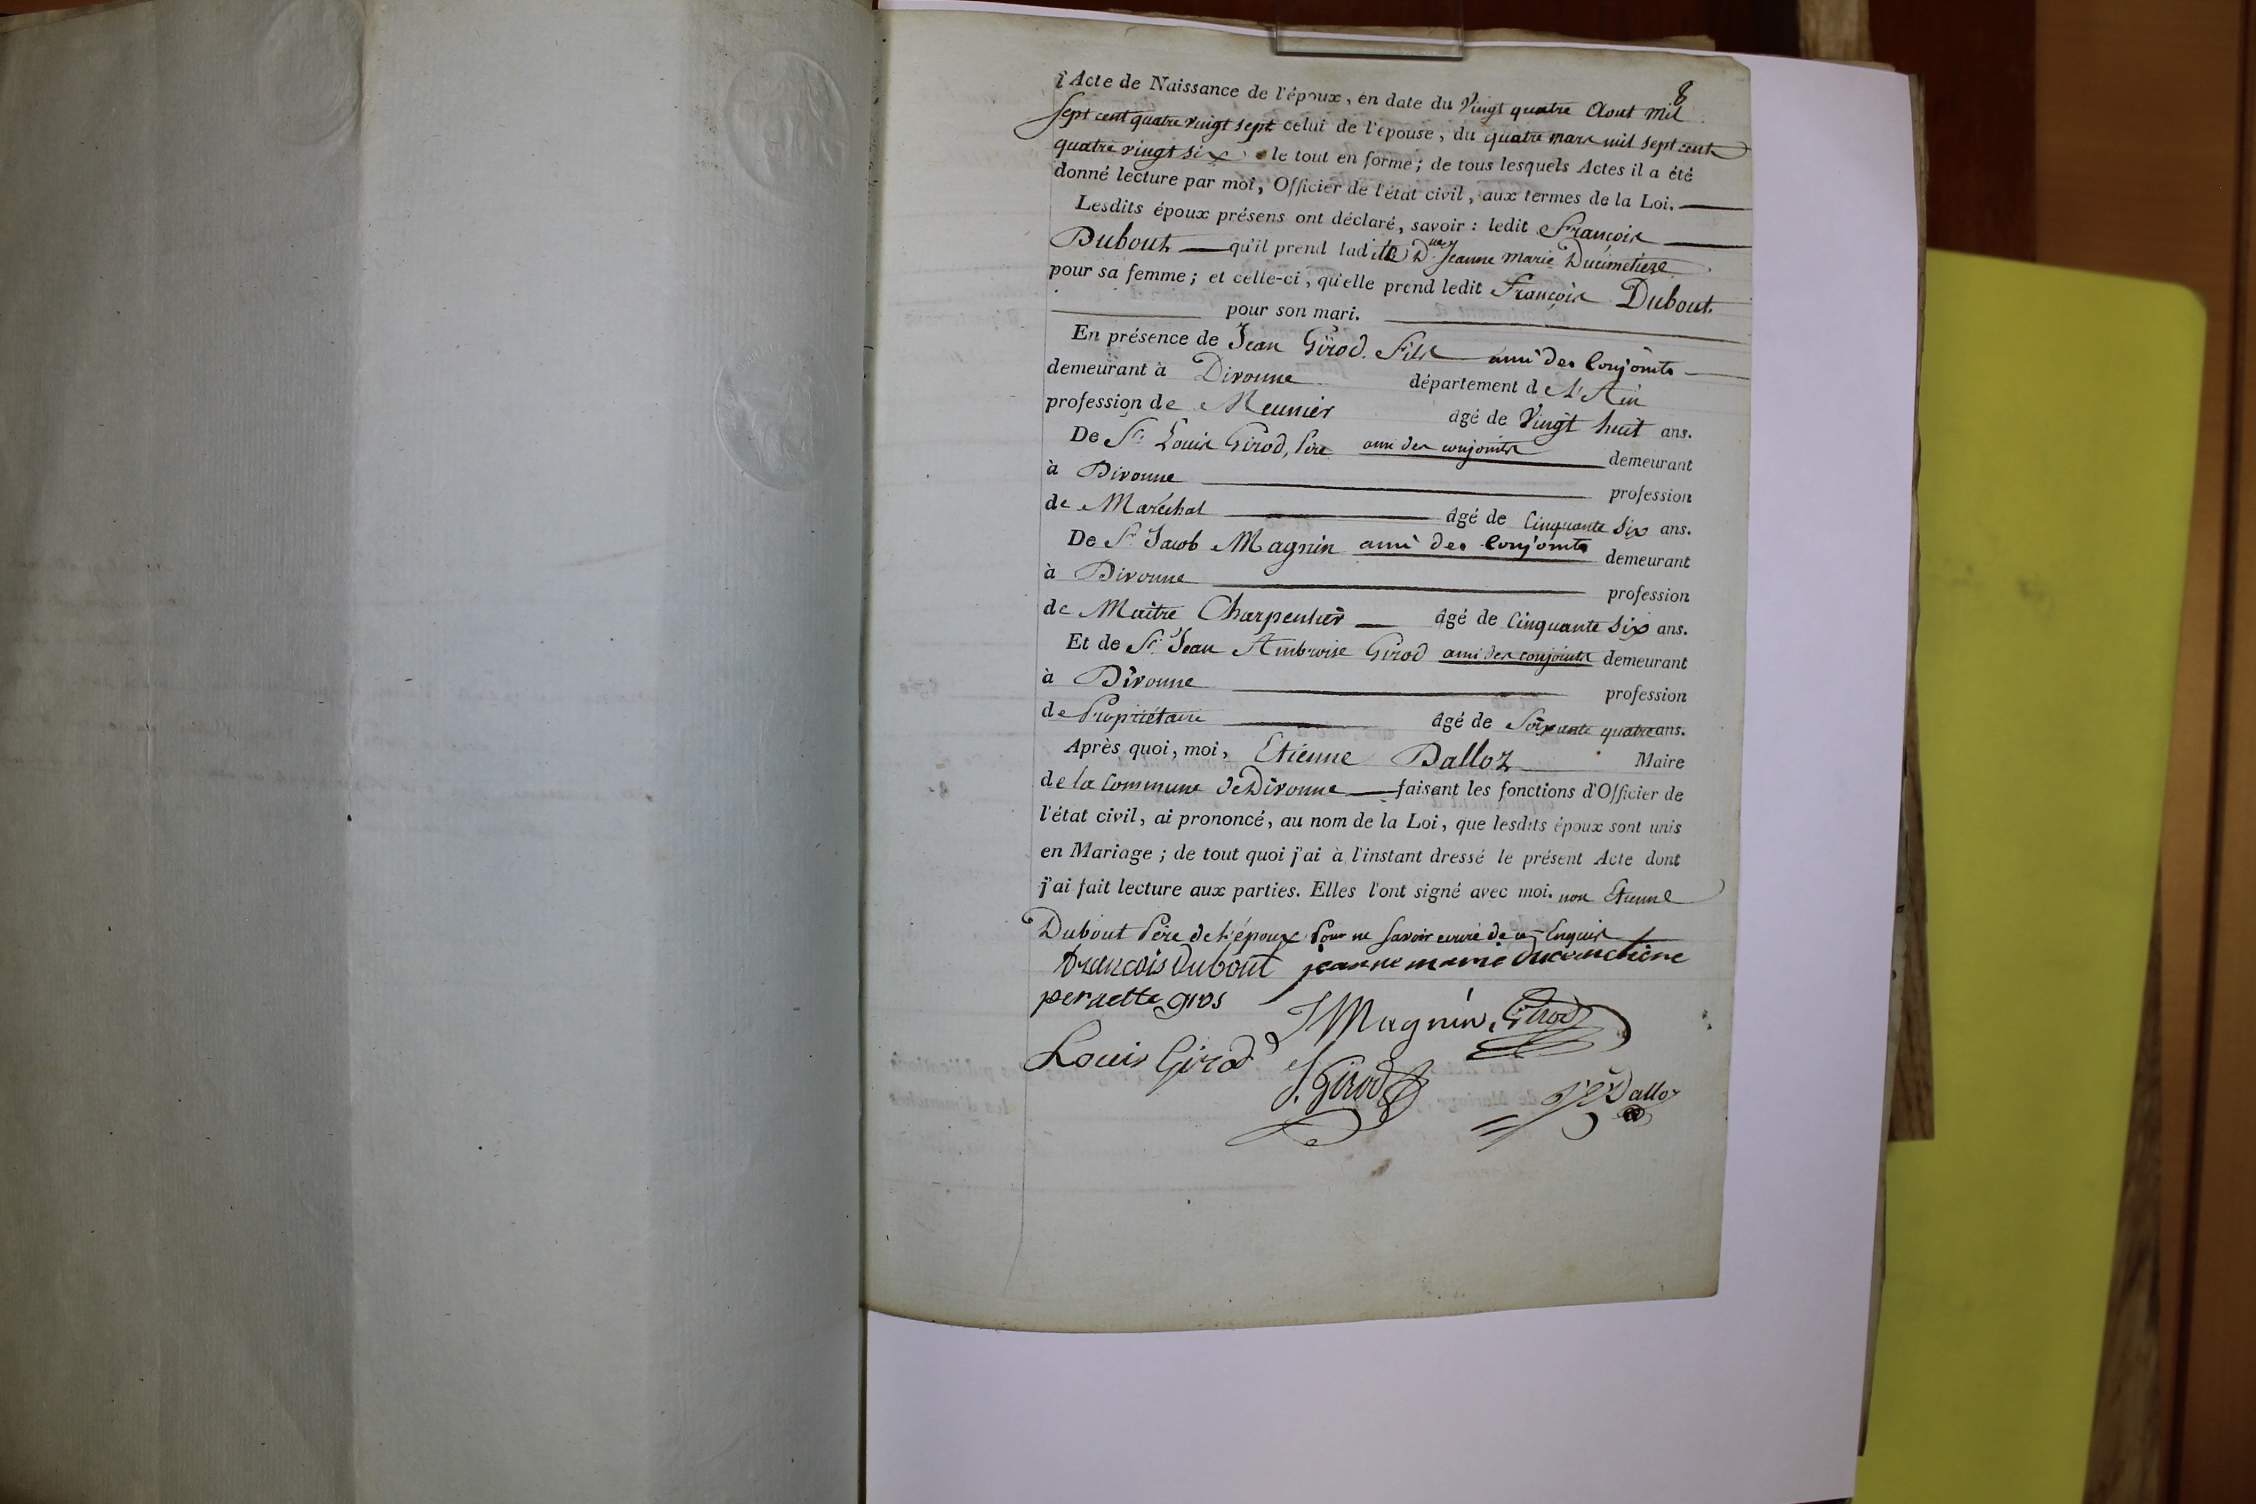 8
Acte de Naissance de l'époux, en date du Vingt quatre Aout mil
sept cent quatre vingt sept celui de l'épouse, du quatre mars mil sept cent
quatre vingt six le tout en forme; de tous lesquels Actes il a été
donné lecture par moi, Officier de l'état civil, aux termes de la Loi.
Lesdits époux présens ont déclaré, savoir : ledit François
Dubout qu'il prend ladite Dlle Jeanne Marie Ducimetiere
pour sa femme; et celle-ci, qu'elle prend ledit François Dubout
pour son mari.
En présence de Jean Girod fils ami des Conjoints
demeurant à Divonne département de l'Ain
profession de Meunier âgé de Vingt huit ans.
De Sr Louis Girod, Père ami des conjoints demeurant
à Divonne profession
de Maréchal âgé de Cinquante Six ans.
De Sr Jacob Magnin ami des Conjoints demeurant
à Divonne profession
de Maitre Charpentier âgé de Cinquante Six ans.
Et de Sr Jean Ambroise Girod ami des conjoints demeurant
à Divonne profession
de Propriétaire âgé de Soixante quatre ans.
Après quoi, moi, Etienne Dalloz Maire
de la Commune de Divonne faisant les fonctions d'Officier de
l'état civil, ai prononcé, au nom de la Loi, que lesdits époux sont unis
en Mariage; de tout quoi j'ai à l'instant dressé le présent Acte dont
j'ai fait lecture aux parties. Elles l'ont signé avec moi. non Etienne
Dubout Père de l'époux Pour ne Savoir ecrire de ce Enquis
francois Dubout jeanne marie ducimetiere
pernette gros
J Magnin Girod
Louis Girod J. Girod
Dalloz